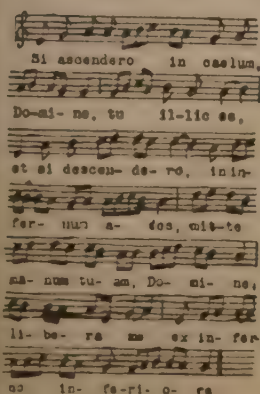 Si ascendero in caelum,
Do-mi- ne, tu il-lic es,
et si descen- de- ro, in in-
fer- num a- des, mit-te
ma- num tu- am, Do- mi- ne,
li- be- ra me ex in- fer-
no in- fe-ri- o- re